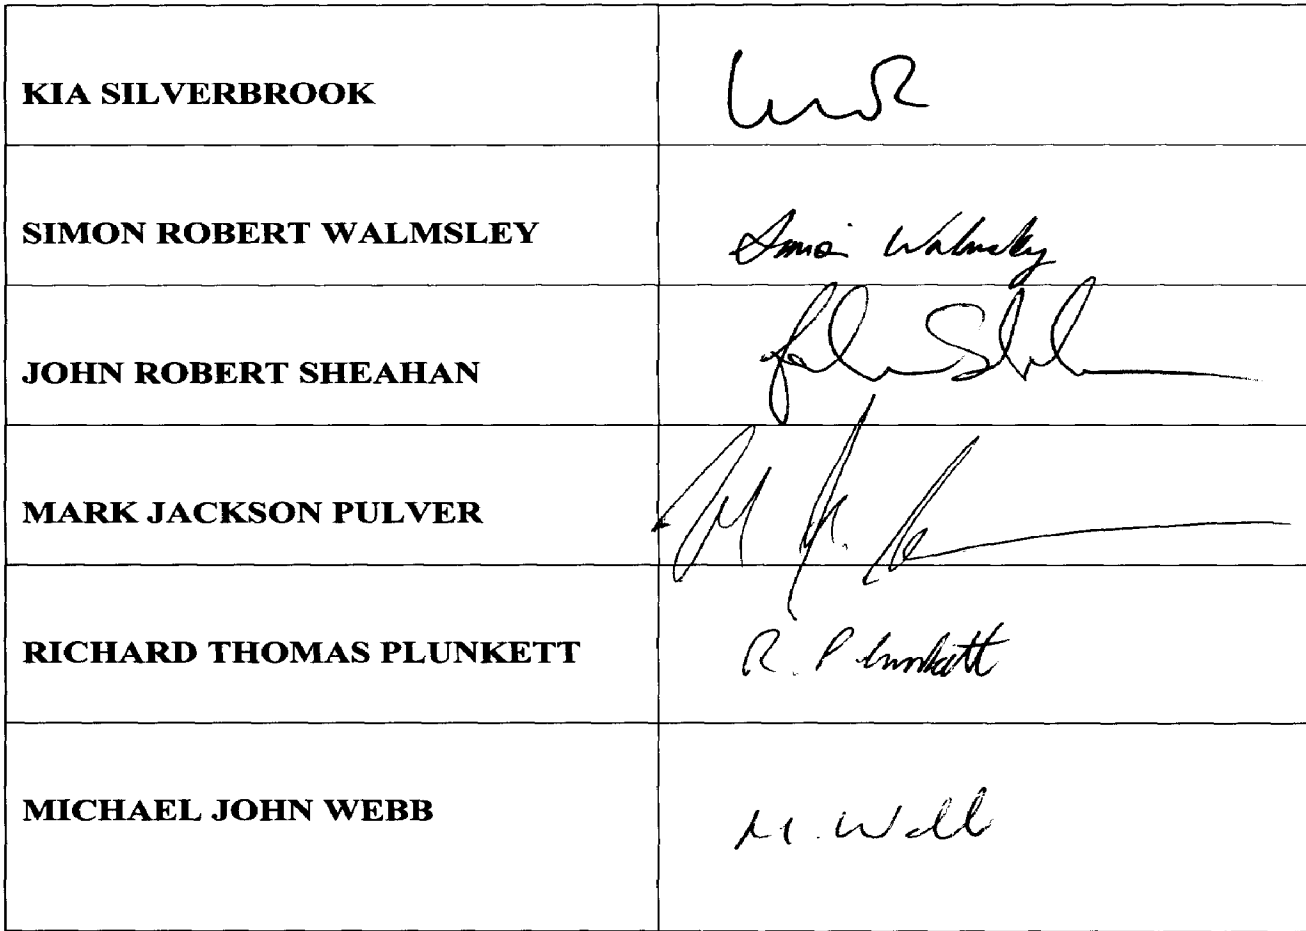 KIA SILVERBROOK
SIMON ROBERT WALMSLEY Simon Walmsley
JOHN ROBERT SHEAHAN
MARK JACKSON PULVER
RICHARD THOMAS PLUNKETT R. Plunkett
MICHAEL JOHN WEBB M. Webb